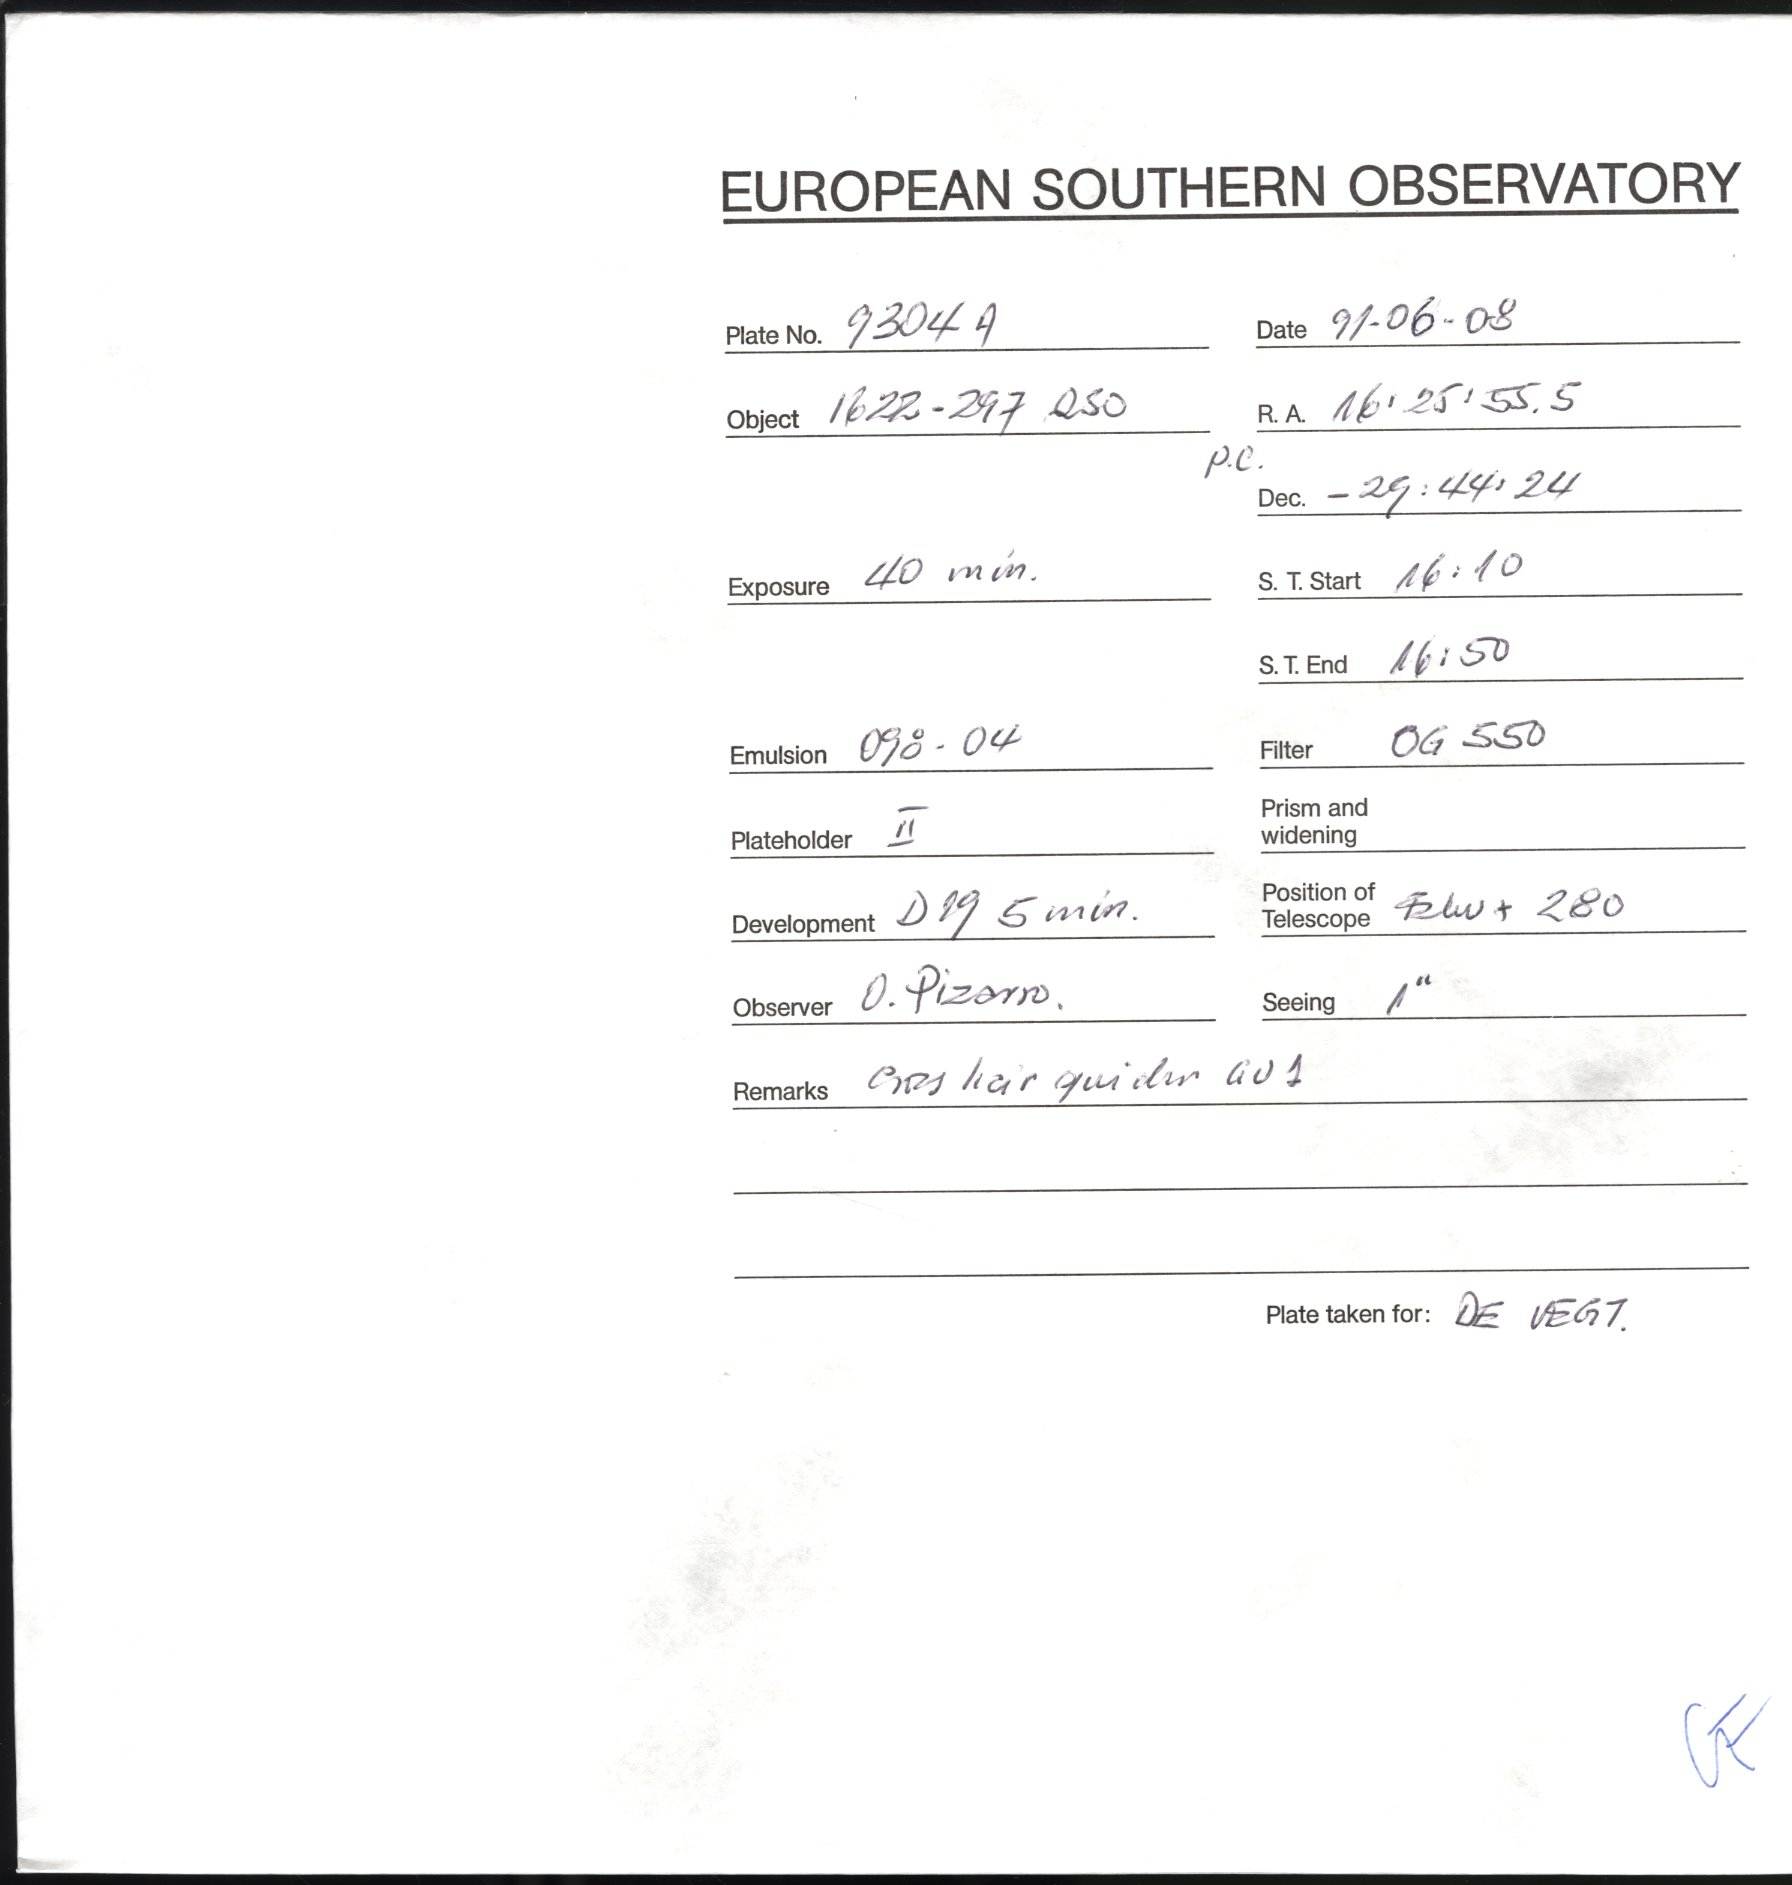 EUROPEAN SOUTHERN OBSERVATORY
Plate No. 9304 A Date 91-06-08
Object 1622-297 QSO R. A. 16:25:55.5
P.C.
Dec. -29:44:24
Exposure 40 min. S. T. Start 16:10
S. T. End 16:50
Emulsion 098-04 Filter OG 550
Prism and
Plateholder II widening
Position of
Development D19 5 min. Telescope + 280
Observer O. Pizarro. Seeing 1"
Remarks hair guider
Plate taken for: DE VEGT.